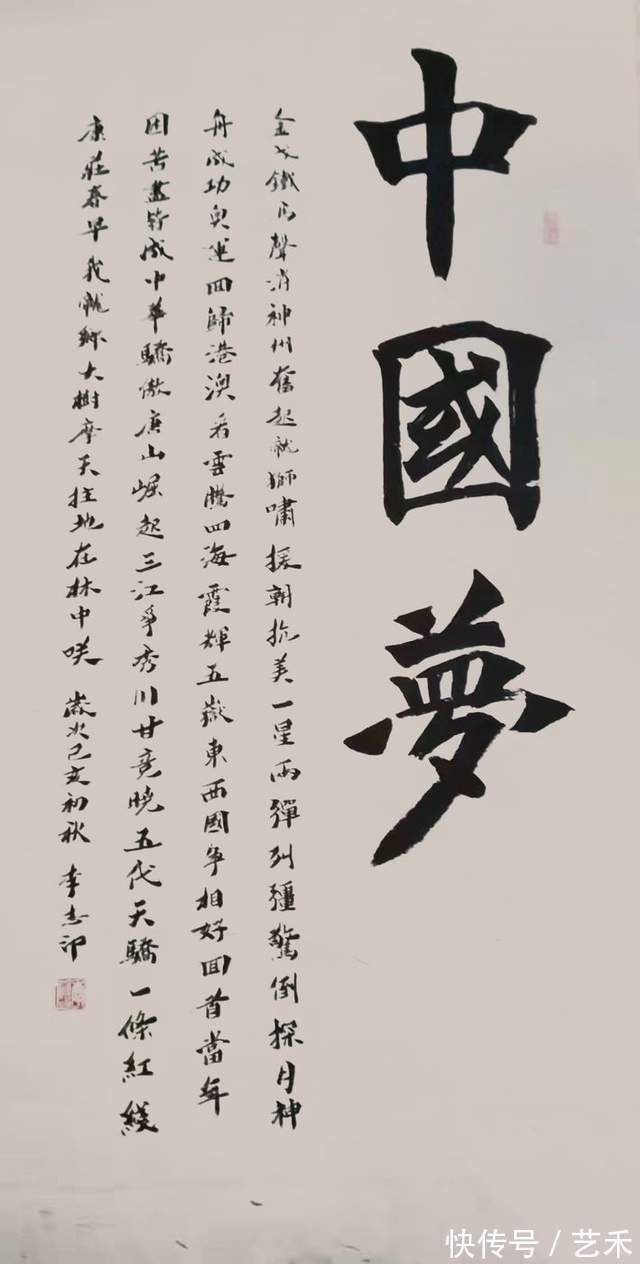 中國夢
金戈鐵馬聲消神州奮起龍獅嘯援朝抗美一星兩彈列疆驚倒探月神
舟成功奥運回歸港澳看雲騰四海霞輝五嶽東西國爭相好回首當年
困苦盡皆成中華驕傲唐山崛起三江爭秀川甘竟曉五代天驕一條紅綫
康莊春早我龍鄉大樹摩天拄地在林中咲 歲次己亥初秋 李志印
快传号／艺禾